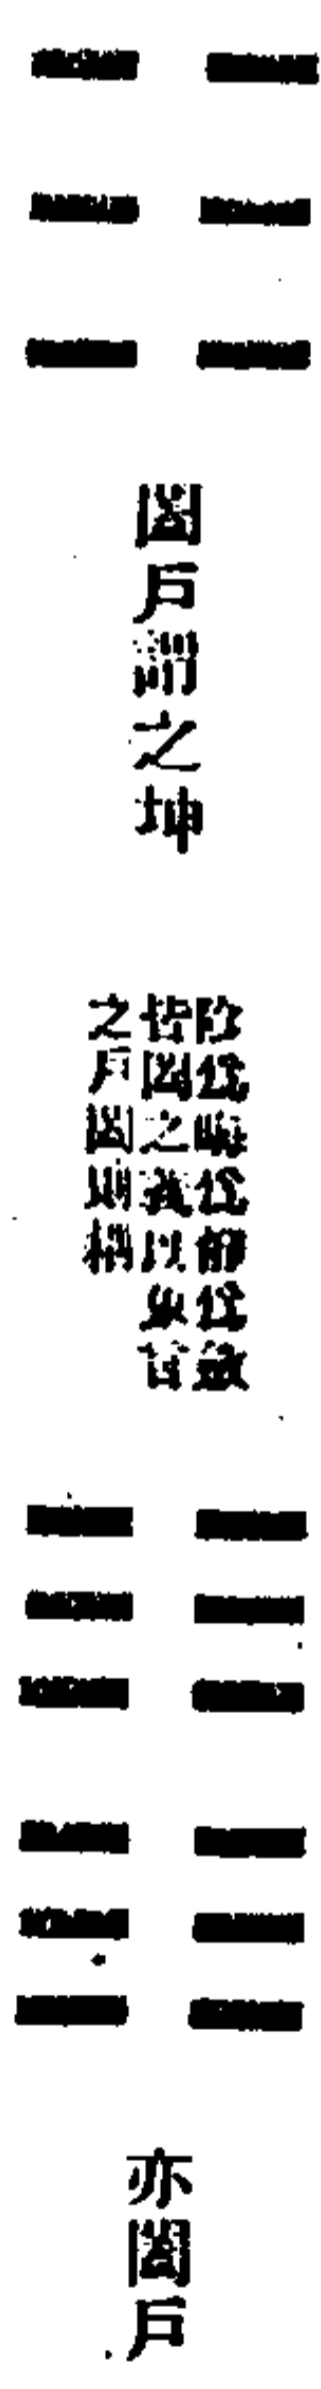 闔戶謂之坤
陰爲晦爲靜爲斂
皆闔之義以象言
之戶闔則耦
亦闔戶